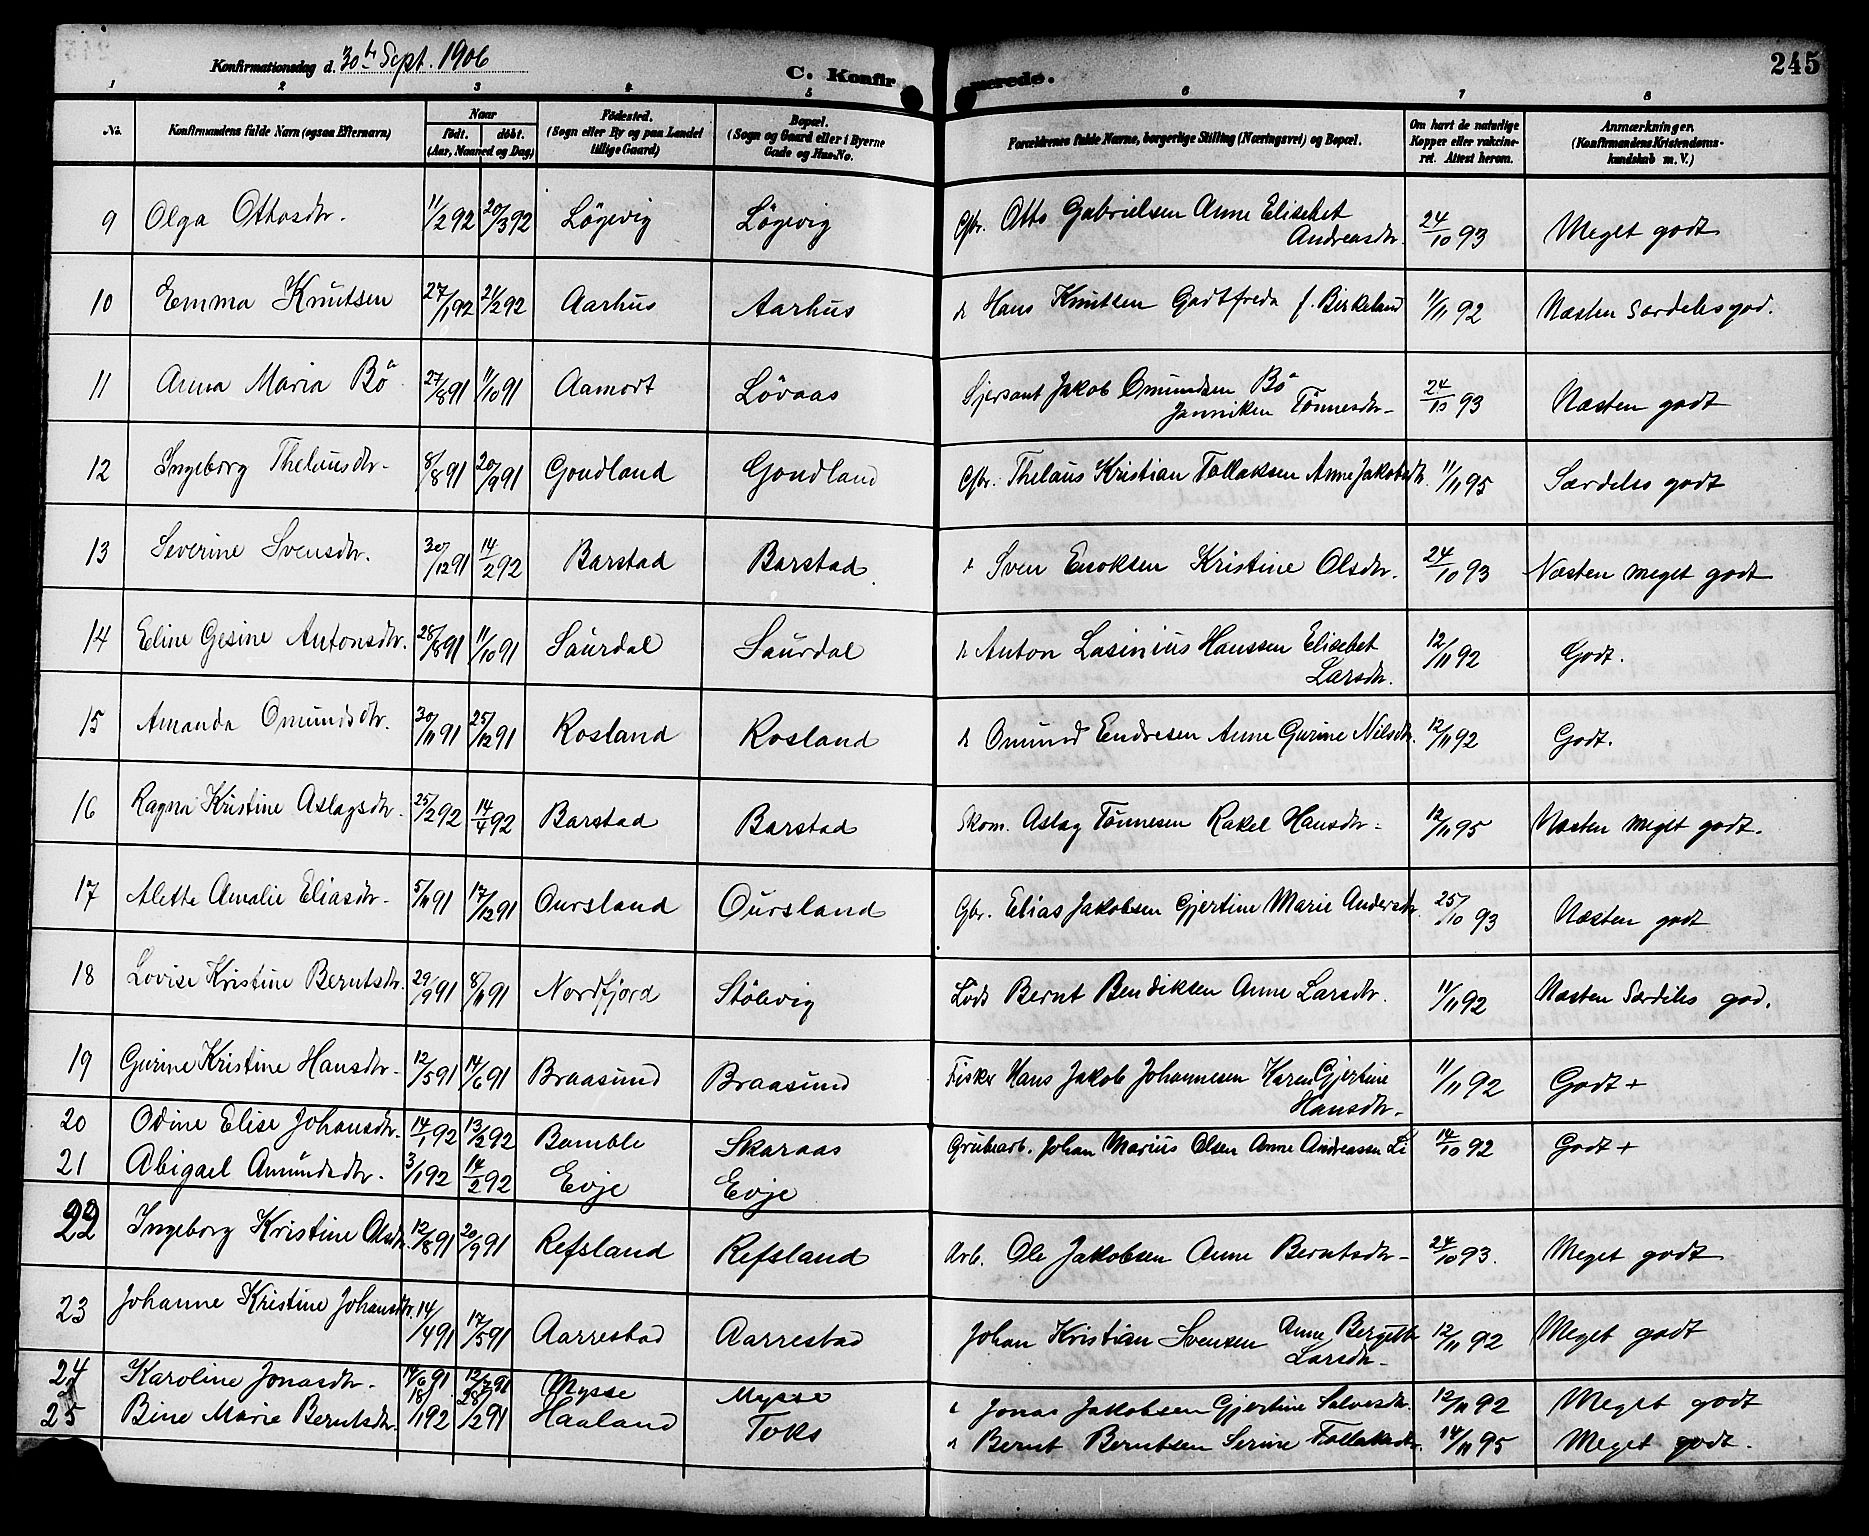 Konfirmationsdag d. 30te Sept. 1906
C. Konfirmerede.
245
1 2 3 4 5 6 7 8
No. Konfirmandens fulde Navn (ogsaa Efternavn) Naar født. døbt. (Aar, Maaned og Dag) Fødested. (Sogn eller By og paa Landet tillige Gaard) Bopæl. (Sogn og Gaard eller i Byerne Gade og Hus-No. Forældrenes fulde Navne, borgerlige Stilling (Næringsvei) og Bopæl. Om havt de naturlige Kopper eller vaksineret. Attest herom. Anmærkninger. (Konfirmandens Kristendomskundskab m. V.)
9 Olga Ottosdtr. 11/2 92 20/3 92 Lögevig Lögevig Gbr. Otto Gabrielsen Anne Elisebet Andreasdtr. 24/10 93 Meget godt
10 Emma Knutsen 27/1 92 21/2 92 Aarhus Aarhus Hans Knutsen Godtfreda f. Birkeland 11/11 92 Næsten Særdeles god.
11 Anna Maria Bö 27/8 91 11/10 91 Aamort Lövaas Sjersant Jakob Omundsen Bö Janniken Tönnesdtr. 24/10 93 Næsten godt
12 Ingeborg Thelausdtr. 8/8 91 20/9 91 Goudland Goudland Gbr. Thelaus Kristian Tollaksen Anne Jakobsdtr. 11/11 95 Særdeles godt
13 Severine Svensdtr. 30/12 91 14/2 92 Barstad Barstad Sven Enoksen Kristine Olsdtr. 24/10 93 Næsten meget godt
14 Eline Gesine Antonsdtr. 28/8 91 11/10 91 Saurdal Saurdal Anton Lasinius Hanssen Elisebet Larsdtr. 12/11 92 Godt.
15 Amanda Omundsdtr. 30/11 91 25/12 91 Rosland Rosland Omund Endresen Anne Gurine Nilsdtr. 12/11 92 Godt.
16 Ragna Kristine Aslagsdtr. 25/2 92 14/4 92 Barstad Barstad Skom. Aslag Tönnesen Rakel Hansdtr. 12/11 95 Næsten meget godt.
17 Alette Amalie Eliasdtr. 5/11 91 17/12 91 Oursland Oursland Gbr. Elias Jakobsen Gjertine Marie Andersdtr. 25/10 93 Næsten godt
18 Lovise Kristine Berntsdtr. 29/9 91 8/11 91 Nordfjord Stölevig Lods Bernt Bendiksen Anne Larsdtr. 11/11 92 Næsten Særdeles god.
19 Gurine Kristine Hansdtr. 12/5 91 14/6 91 Braasund Braasund Fisker Hans Jakob Johannesen Karen Gjertine Hansdtr. 11/11 92 Godt +
20 Odine Elise Johansdtr. 14/1 92 13/2 92 Bamble Skaraas Grubearb. Johan Marius Olsen Anne Andreassen Li 14/10 92 Godt +
21 Abigael Amundsdtr. 3/1 92 14/2 92 Evje Evje
22 Ingeborg Kristine Olsdtr. 12/8 91 20/9 91 Refsland Refsland Arb. Ole Jakobsen Anne Berntsdtr. 24/10 93. Meget godt
23 Johanne Kristine Johansdtr. 14/4 91 17/5 91 Aarrestad Aarrestad Johan Kristian Svensen Anne Bergitte Larsdtr. 12/11 92 Meget godt
24 Karoline Jonasdtr. 14/6 91 12/7 91 Mysse Mysse Jonas Jakobsen Gjertine Salvesdtr. 12/11 92 Meget godt
25 Bine Marie Berntsdtr. 18/1 92 28/2 91 Haaland Toks Bernt Berntsen Serine Tollaksdtr. 14/11 95 Meget godt.